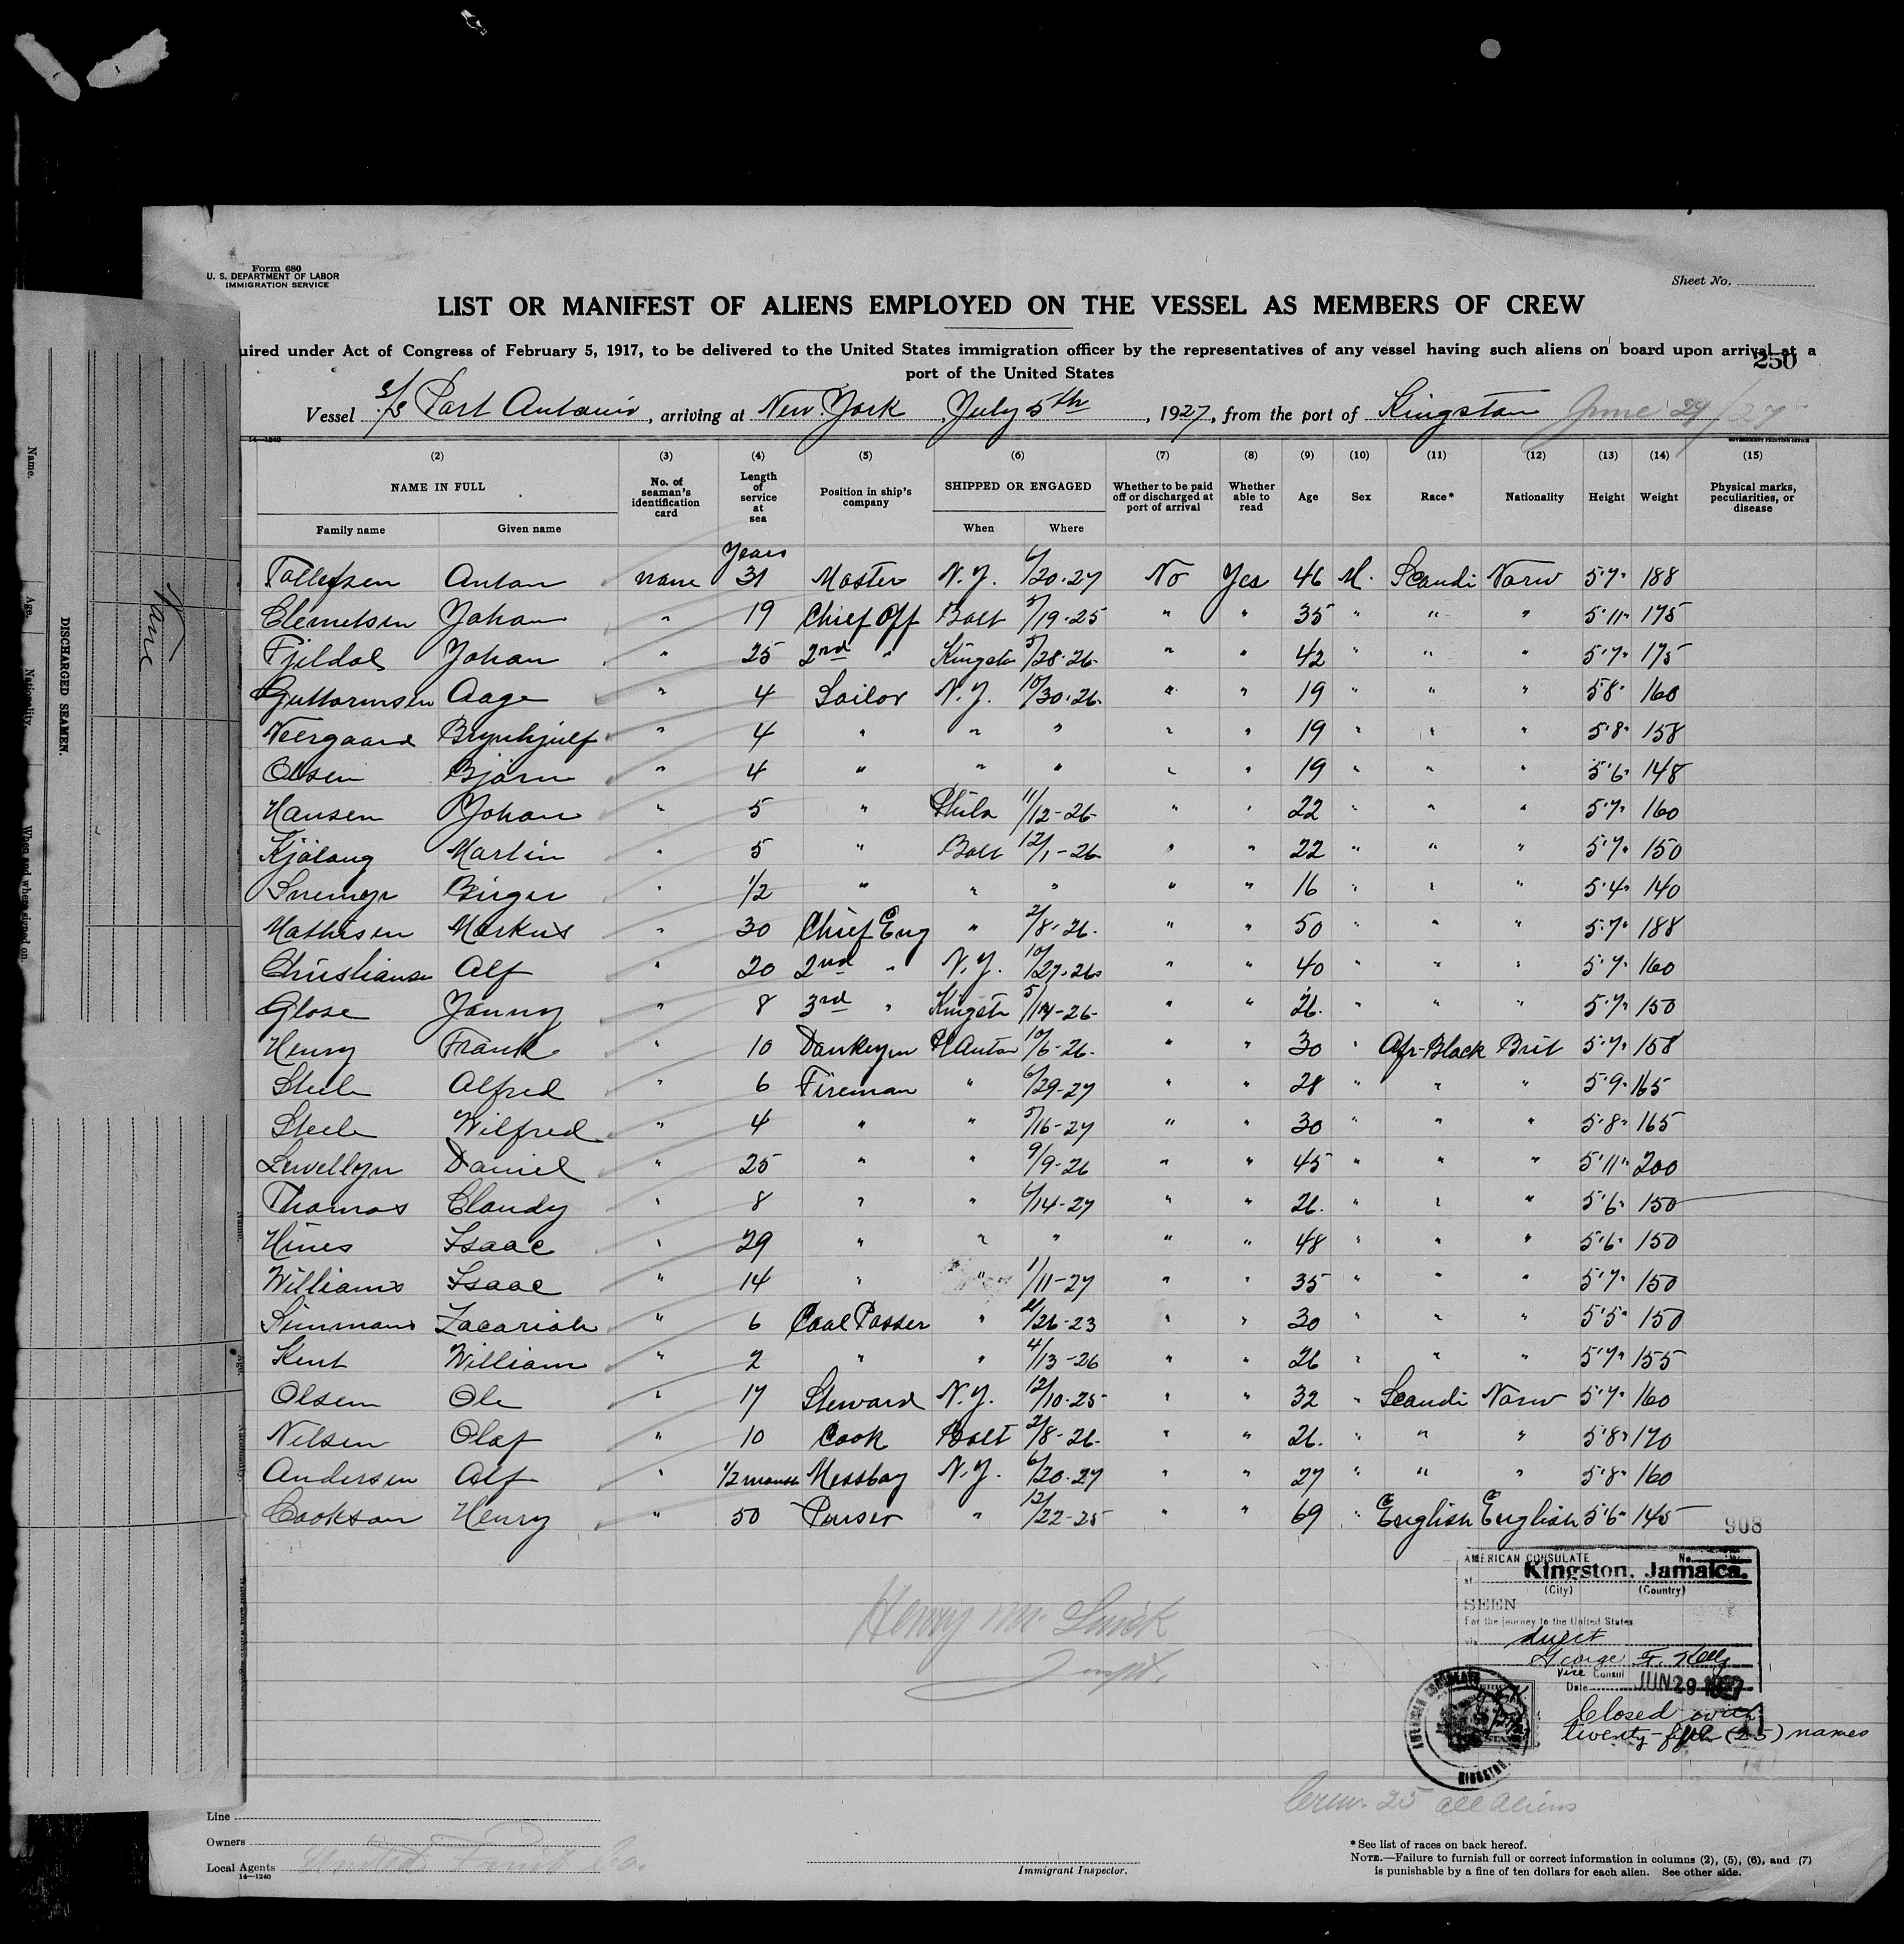 Form 680
U. S. DEPARTMENT OF LABOR
IMMIGRATION SERVICE
Sheet No.
LIST OR MANIFEST OF ALIENS EMPLOYED ON THE VESSEL AS MEMBERS OF CREW
uired under Act of Congress of February 5, 1917, to be delivered to the United States immigration officer by the representatives of any vessel having such aliens on board upon arrival at a
port of the United States
250
Vessel S/S Port Antonio, arriving at New York, July 5th, 1927, from the port of Kingston June 29/27
14—1240 GOVERNMENT PRINTING OFFICE
(2) (3) (4) (5) (6) (7) (8) (9) (10) (11) (12) (13) (14) (15)
NAME IN FULL No. of seaman's identification card Length of service at sea Position in ship's company SHIPPED OR ENGAGED Whether to be paid off or discharged at port of arrival Whether able to read Age Sex Race* Nationality Height Weight Physical marks, peculiarities, or disease
Family name Given name When Where
Years
Tollefsen Anton none 31 Master N.Y. 6/20-27 No Yes 46 M. Scandi Norw 5'7" 188
Clemetsen Johan " 19 Chief Off Balt 5/19-25 " " 35 " " " 5'11" 175
Fjildal Johan " 25 2nd " Kingstn 5/28-26 " " 42 " " " 5'7" 175
Guttormsen Aage " 4 Sailor N.Y. 10/30-26 " " 19 " " " 5'8" 160
Neergaard Brynhjulf " 4 " " " " " 19 " " " 5'8" 158
Olsen Bjarne " 4 " " " " " 19 " " " 5'6" 148
Hansen Johan " 5 " Phila 11/12-26 " " 22 " " " 5'7" 160
Martin " 5 " Balt 12/1-26 " " 22 " " " 5'7" 150
Birger " 1/2 " " " " " 16 " " " 5'4" 140
Mathisen Markus " 30 Chief Eng " 2/8-26 " " 50 " " " 5'7" 188
Christiansen Alf " 20 2nd " N.Y. 10/27-26 " " 40 " " " 5'7" 160
Glose Jonny " 8 3rd " Kingstn 5/14-26 " " 26 " " " 5'7" 150
Henry Frank " 10 Donkeymn Pt Anton 10/6-26 " " 30 " Afr-Black Brit 5'7" 158
Steele Alfred " 6 Fireman " 6/29-27 " " 28 " " " 5'9" 165
Steele Wilfred " 4 " " 5/16-27 " " 30 " " " 5'8" 165
Lewellyn Daniel " 25 " " 9/9-26 " " 45 " " " 5'11" 200
Thomas Claudy " 8 " " 6/14-27 " " 26 " " " 5'6" 150
Hines Isaac " 29 " " " " " 48 " " " 5'6" 150
Williams Isaac " 14 " " 1/11-27 " " 35 " " " 5'7" 150
Simmons Zacariah " 6 Coal Passer " /26-23 " " 30 " " " 5'5" 150
Kent William " 2 " " 4/13-26 " " 26 " " " 5'7" 155
Olsen Ole " 17 Steward N.Y. 12/10-25 " " 32 " Scandi Norw 5'7" 160
Nilsen Olaf " 10 Cook Balt 2/8-26 " " 26 " " " 5'8" 170
Andersen Alf " 1/2 month Messboy N.Y. 6/20-27 " " 27 " " " 5'8" 160
Cookson Henry " 50 Purser " 12/22-25 " " 69 " English English 5'6" 145
908
AMERICAN CONSULATE No.
at Kingston, Jamaica.
(City) (Country)
SEEN
For the journey to the United States
via direct
George F. Kelly
Vice Consul
Date JUN 29 1927
Closed with
twenty-five (25) names
AMERICAN CONSULATE
KINGSTON
Henry M. Smick
Inspt.
Crew. 25 all aliens
Line
Owners
Local Agents United Fruit Co.
14—1240
Immigrant Inspector.
*See list of races on back hereof.
NOTE.—Failure to furnish full or correct information in columns (2), (5), (6), and (7)
is punishable by a fine of ten dollars for each alien. See other side.
DISCHARGED SEAMEN.
Name. Age. Nationality. When and where signed on.